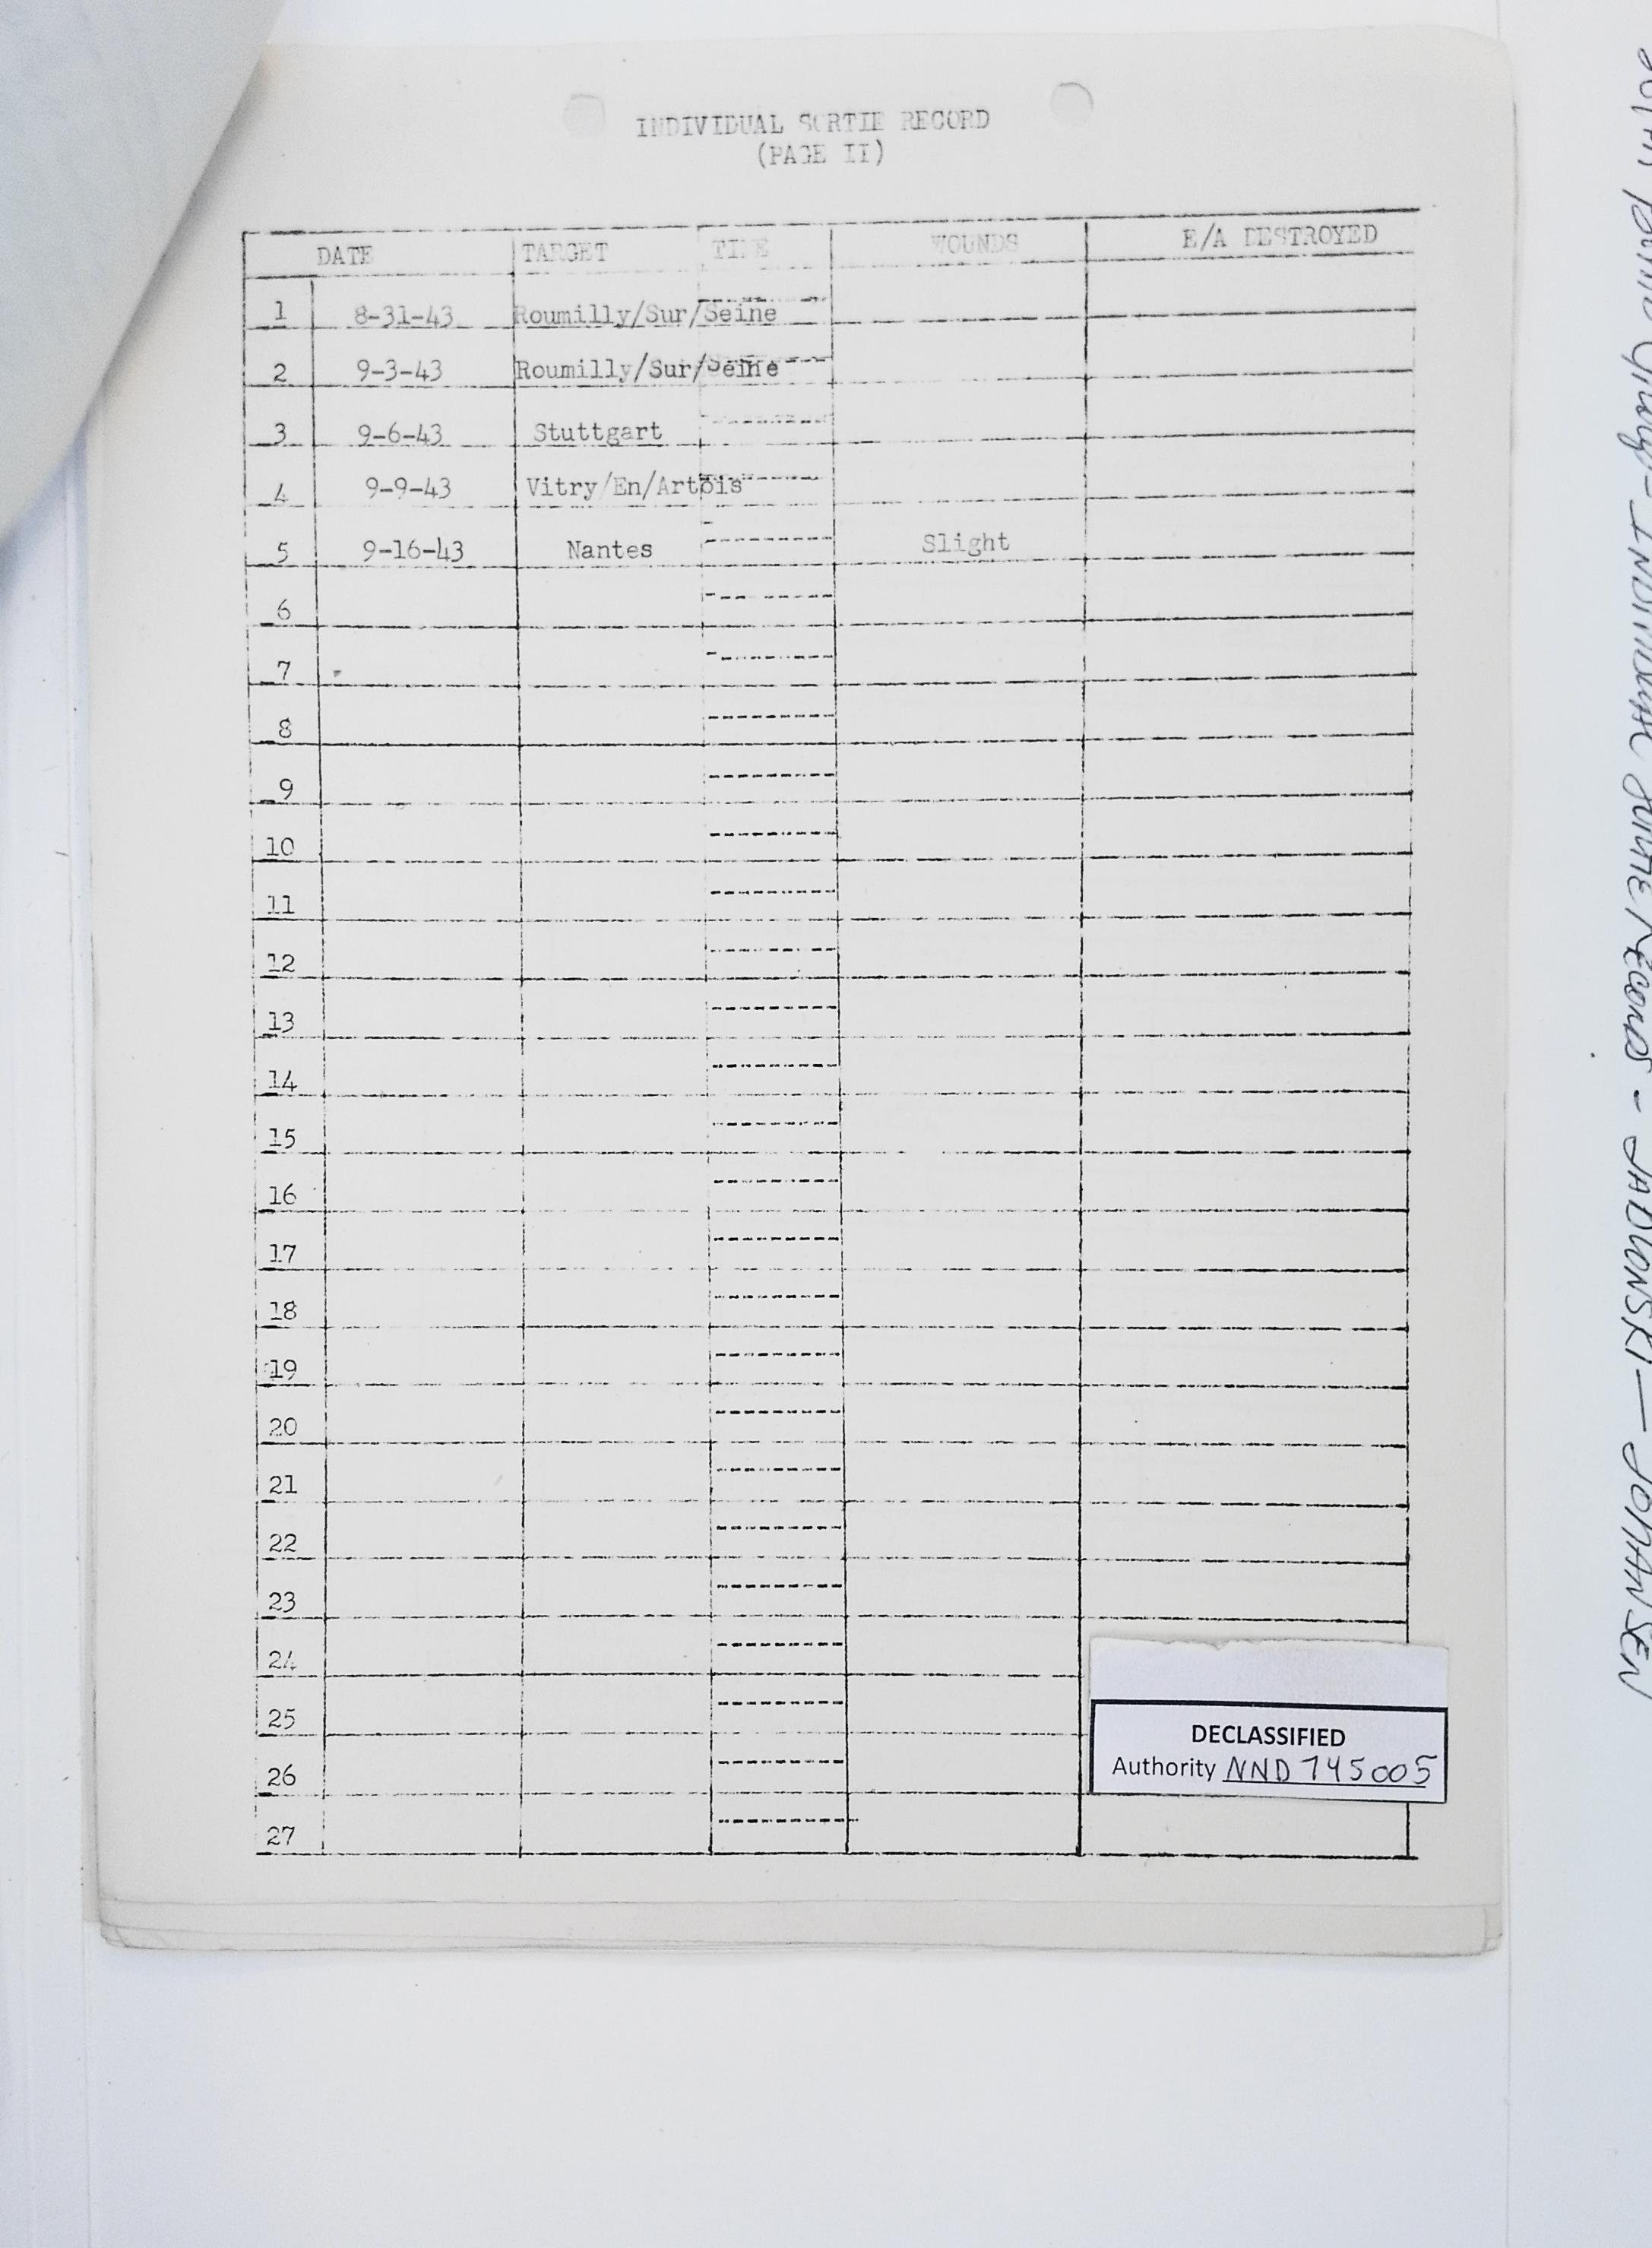 INDIVIDUAL SORTIE RECORD
(PAGE II)
DATE TARGET TIME WOUNDS E/A DESTROYED
1 8-31-43 Roumilly/Sur/Seine
2 9-3-43 Roumilly/Sur/Seine
3 9-6-43 Stuttgart
4 9-9-43 Vitry/En/Artois
5 9-16-43 Nantes Slight
6
7
8
9
10
11
12
13
14
15
16
17
18
19
20
21
22
23
24
25
26
27
DECLASSIFIED
Authority NND 745005
Bomb Group - INDIVIDUAL SORTIE RECORDS - JABLONSKI — JOHANSEN